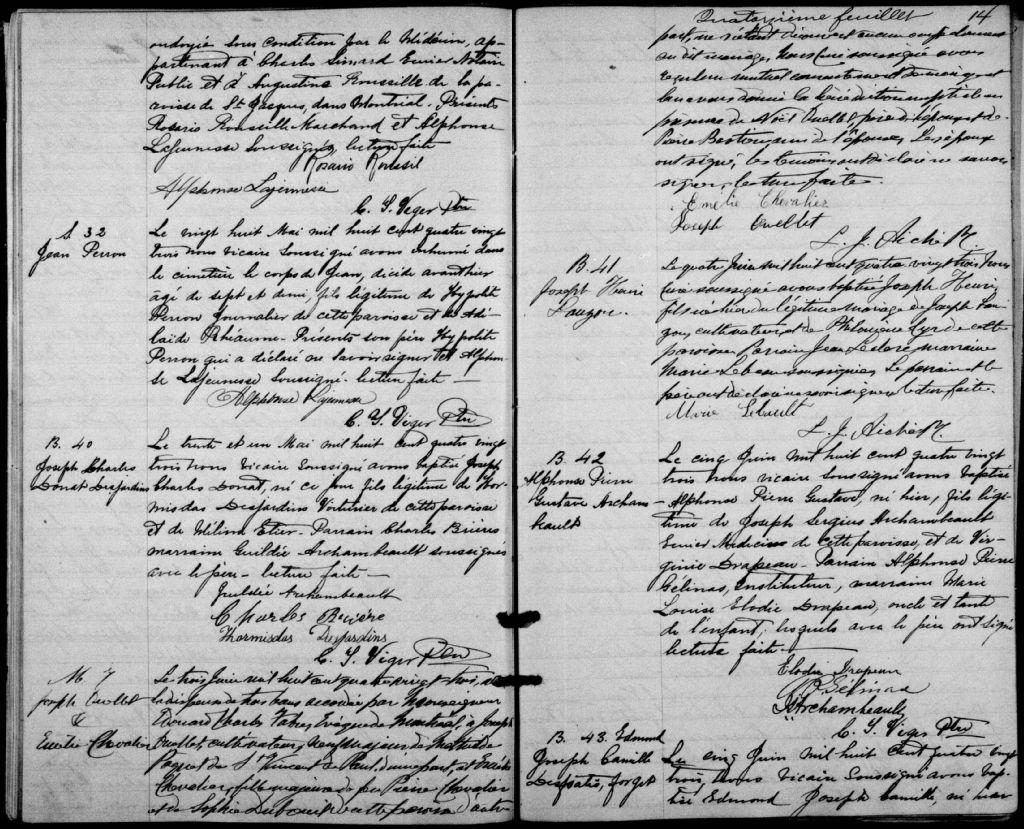 ondoyé sous condition par le Médecin, ap-
partenant à Charles Simard Ecuier Notaire
Public et à Augustine Rouseille de la pa-
roisse de St Jacques, dans Montréal. Présents
Rosario Rouseille Marchand et Alphonse
Lajeunesse Soussignés, lecture faite
Rosario
Alphonse Lajeunesse
C. S. Viger Ptre
S. 32
Jean Perron
Le vingt huit Mai mil huit cent quatre vingt
trois nous vicaire Soussigné avons inhumé dans
le cimetière le corps de Jean, décédé avant hier
âgé de sept et demi, fils légitime de Hypolite
Perron Journalier de cette paroisse et de Adé-
laïde Rhéaume. Présents son père Hypolite
Perron qui a déclaré ne savoir signer et Alphon-
se Lajeunesse Soussigné. lecture faite —
Alphonse Lajeunesse
C. S. Viger Ptre
B. 40
Joseph Charles
Donat Desjardins
Le trente et un Mai mil huit cent quatre vingt
trois nous Vicaire Soussigné avons baptisé Joseph
Charles Donat, né ce jour fils légitime de Thor-
misdas Desjardins Voiturier de cette paroisse
et de Mélina Etier. Parrain Charles Brières
marraine Guildée Archambeault soussignés
avec le père. lecture faite —
Guildée Archambeault
Charles Brière
Thormisdas Desjardins
C. S. Viger Ptre
M. 7
Joseph Ouellet
&
Emélie Chevalier
Le trois Juin mil huit cent quatre vingt trois,
la dispense de trois bans accordée par Monseigneur
Edouard Charles Fabre, Evêque de Montréal, à Joseph
Ouellet, cultivateur,
Paquet de St Vincent de Paul, d'une part, et
Chevalier, fille majeure de feu Pierre Chevalier
et de Sophie de cette paroisse d'autre
Quatorzième feuillet 14
part, ne s'étant découvert aucun empêchement
au dit mariage, Nous curé soussigné avons
reçu leur mutuel consentement de mariage et
leur avons donné la bénédiction nuptiale en
présence de Noël Ouellet, père de l'époux et de
Pierre de l'épouse. Les époux
ont signé, les témoins ont déclaré ne savoir
signer, lecture faite.
Emélie Chevalier
Joseph Ouellet
L. J.
B. 41
Joseph Henri
Lauzon.
Le quatre Juin mil huit cent quatre vingt trois Nous
Curé soussigné avons baptisé Joseph Henri
fils né hier du légitime mariage de Joseph Lau-
zon, cultivateur, et de Philomène Cyr de cette
paroisse. Parrain Jean Leclerc marraine
Marie Lebeau soussignée. Le parrain et le
père ont déclaré ne savoir signer, lecture faite.
Marie
L. J.
B. 42
Alphonse Pierre
Gustave Archam-
beault
Le cinq Juin mil huit cent quatre vingt
trois nous vicaire soussigné avons baptisé
Alphonse Pierre Gustave, né hier, fils légi-
time de Joseph Sergius Archambeault
Ecuier Médecin de cette paroisse, et de Vir-
ginie Drapeau. Parrain Alphonse Pierre
Gélinas, Instituteur, marraine Marie
Louise Elodie Drapeau, oncle et tante
de l'enfant, lesquels avec le père ont signé
lecture faite.
Elodie Drapeau
Gélinas
Archambeault
C. S. Viger Ptre
B. 43. Edmond
Joseph Camille
Forget
Le cinq Juin mil huit cent quatre vingt
trois, nous Vicaire Soussigné avons bap-
tisé Edmond Joseph Camille, né hier